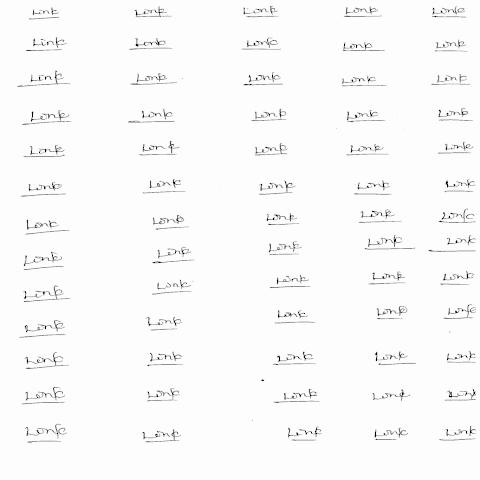 Link Link Link Link Link
Link Link Link Link Link
Link Link Link Link Link
Link Link Link Link Link
Link Link Link Link Link
Link Link Link Link Link
Link Link Link Link Link
Link Link Link Link Link
Link Link Link Link Link
Link Link Link Link Link
Link Link Link Link Link
Link Link Link Link Link
Link Link Link Link Link